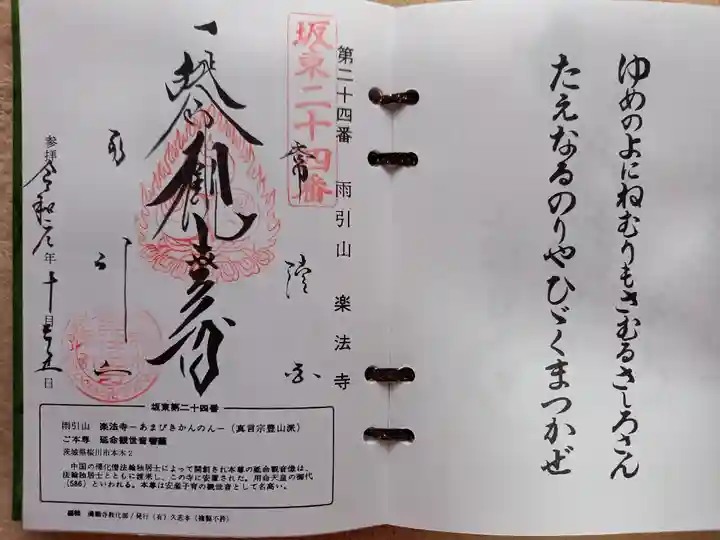 ゆめのよにねむりもさむるさしろさん
たえなるのりやひゞくまつかぜ
第二十四番 雨引山 楽法寺
坂東二十四番
常陸国
雨引山
参拝 令和二年十月
日
坂東第二十四番
雨引山 楽法寺－あまびきかんのん－（真言宗豊山派）
ご本尊 延命観世音菩薩
茨城県桜川市本木2
中国の帰化僧法輪独居士によって開創され本尊の延命観世音像は、
法輪独居士とともに渡来し、この寺に安置された。用命天皇の御代
（586）といわれる。本尊は安産子育の観世音として名高い。
編輯 満願寺教化部/発行（有）久恵本（複製不許）